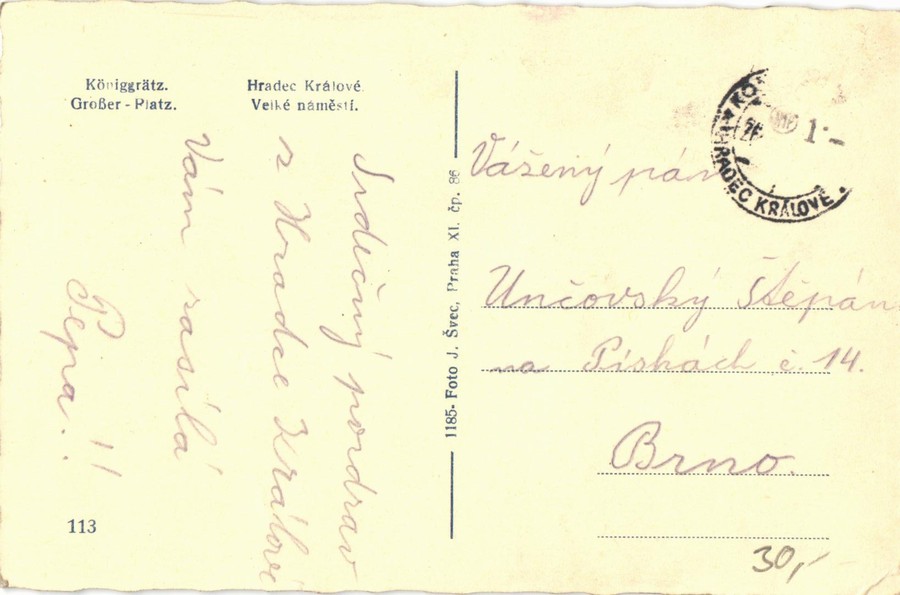 Königgrätz.
Großer-Platz.
Hradec Králové
Velké náměstí.
Srdečný pozdrav
z Hradce Králové
Vám zasílá
Pepa!!
113
1185- Foto J. Švec, Praha XI. čp. 86
HRADEC KRÁLOVÉ
1·-
Vážený pán
Unčovský Štěpán
na Pískách č. 14.
Brno.
30,-